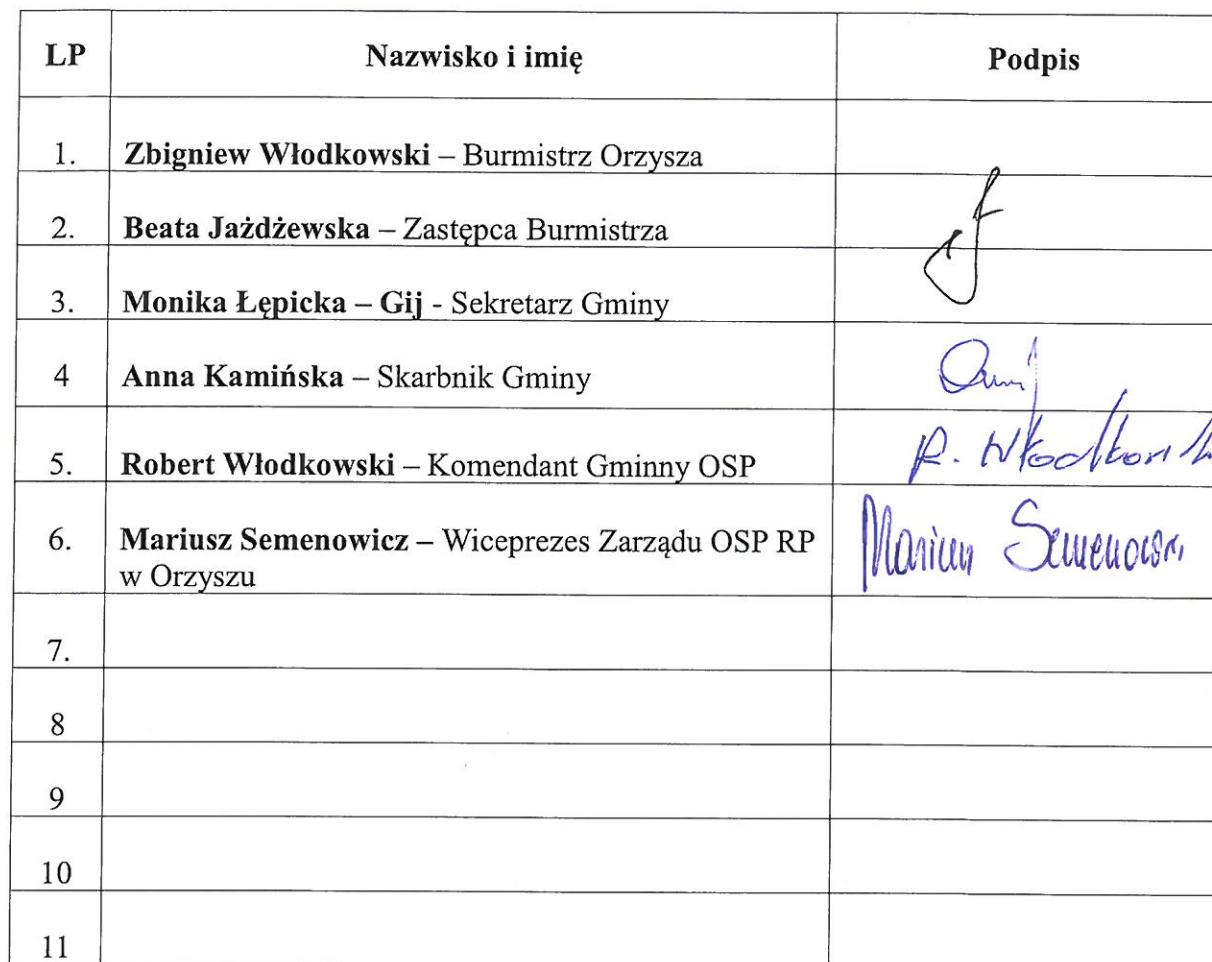 LP Nazwisko i imię Podpis
1. Zbigniew Włodkowski – Burmistrz Orzysza
2. Beata Jażdżewska – Zastępca Burmistrza
3. Monika Łępicka – Gij - Sekretarz Gminy
4 Anna Kamińska – Skarbnik Gminy
5. Robert Włodkowski – Komendant Gminny OSP R. Włodkowski
6. Mariusz Semenowicz – Wiceprezes Zarządu OSP RP
w Orzyszu
7.
8
9
10
11